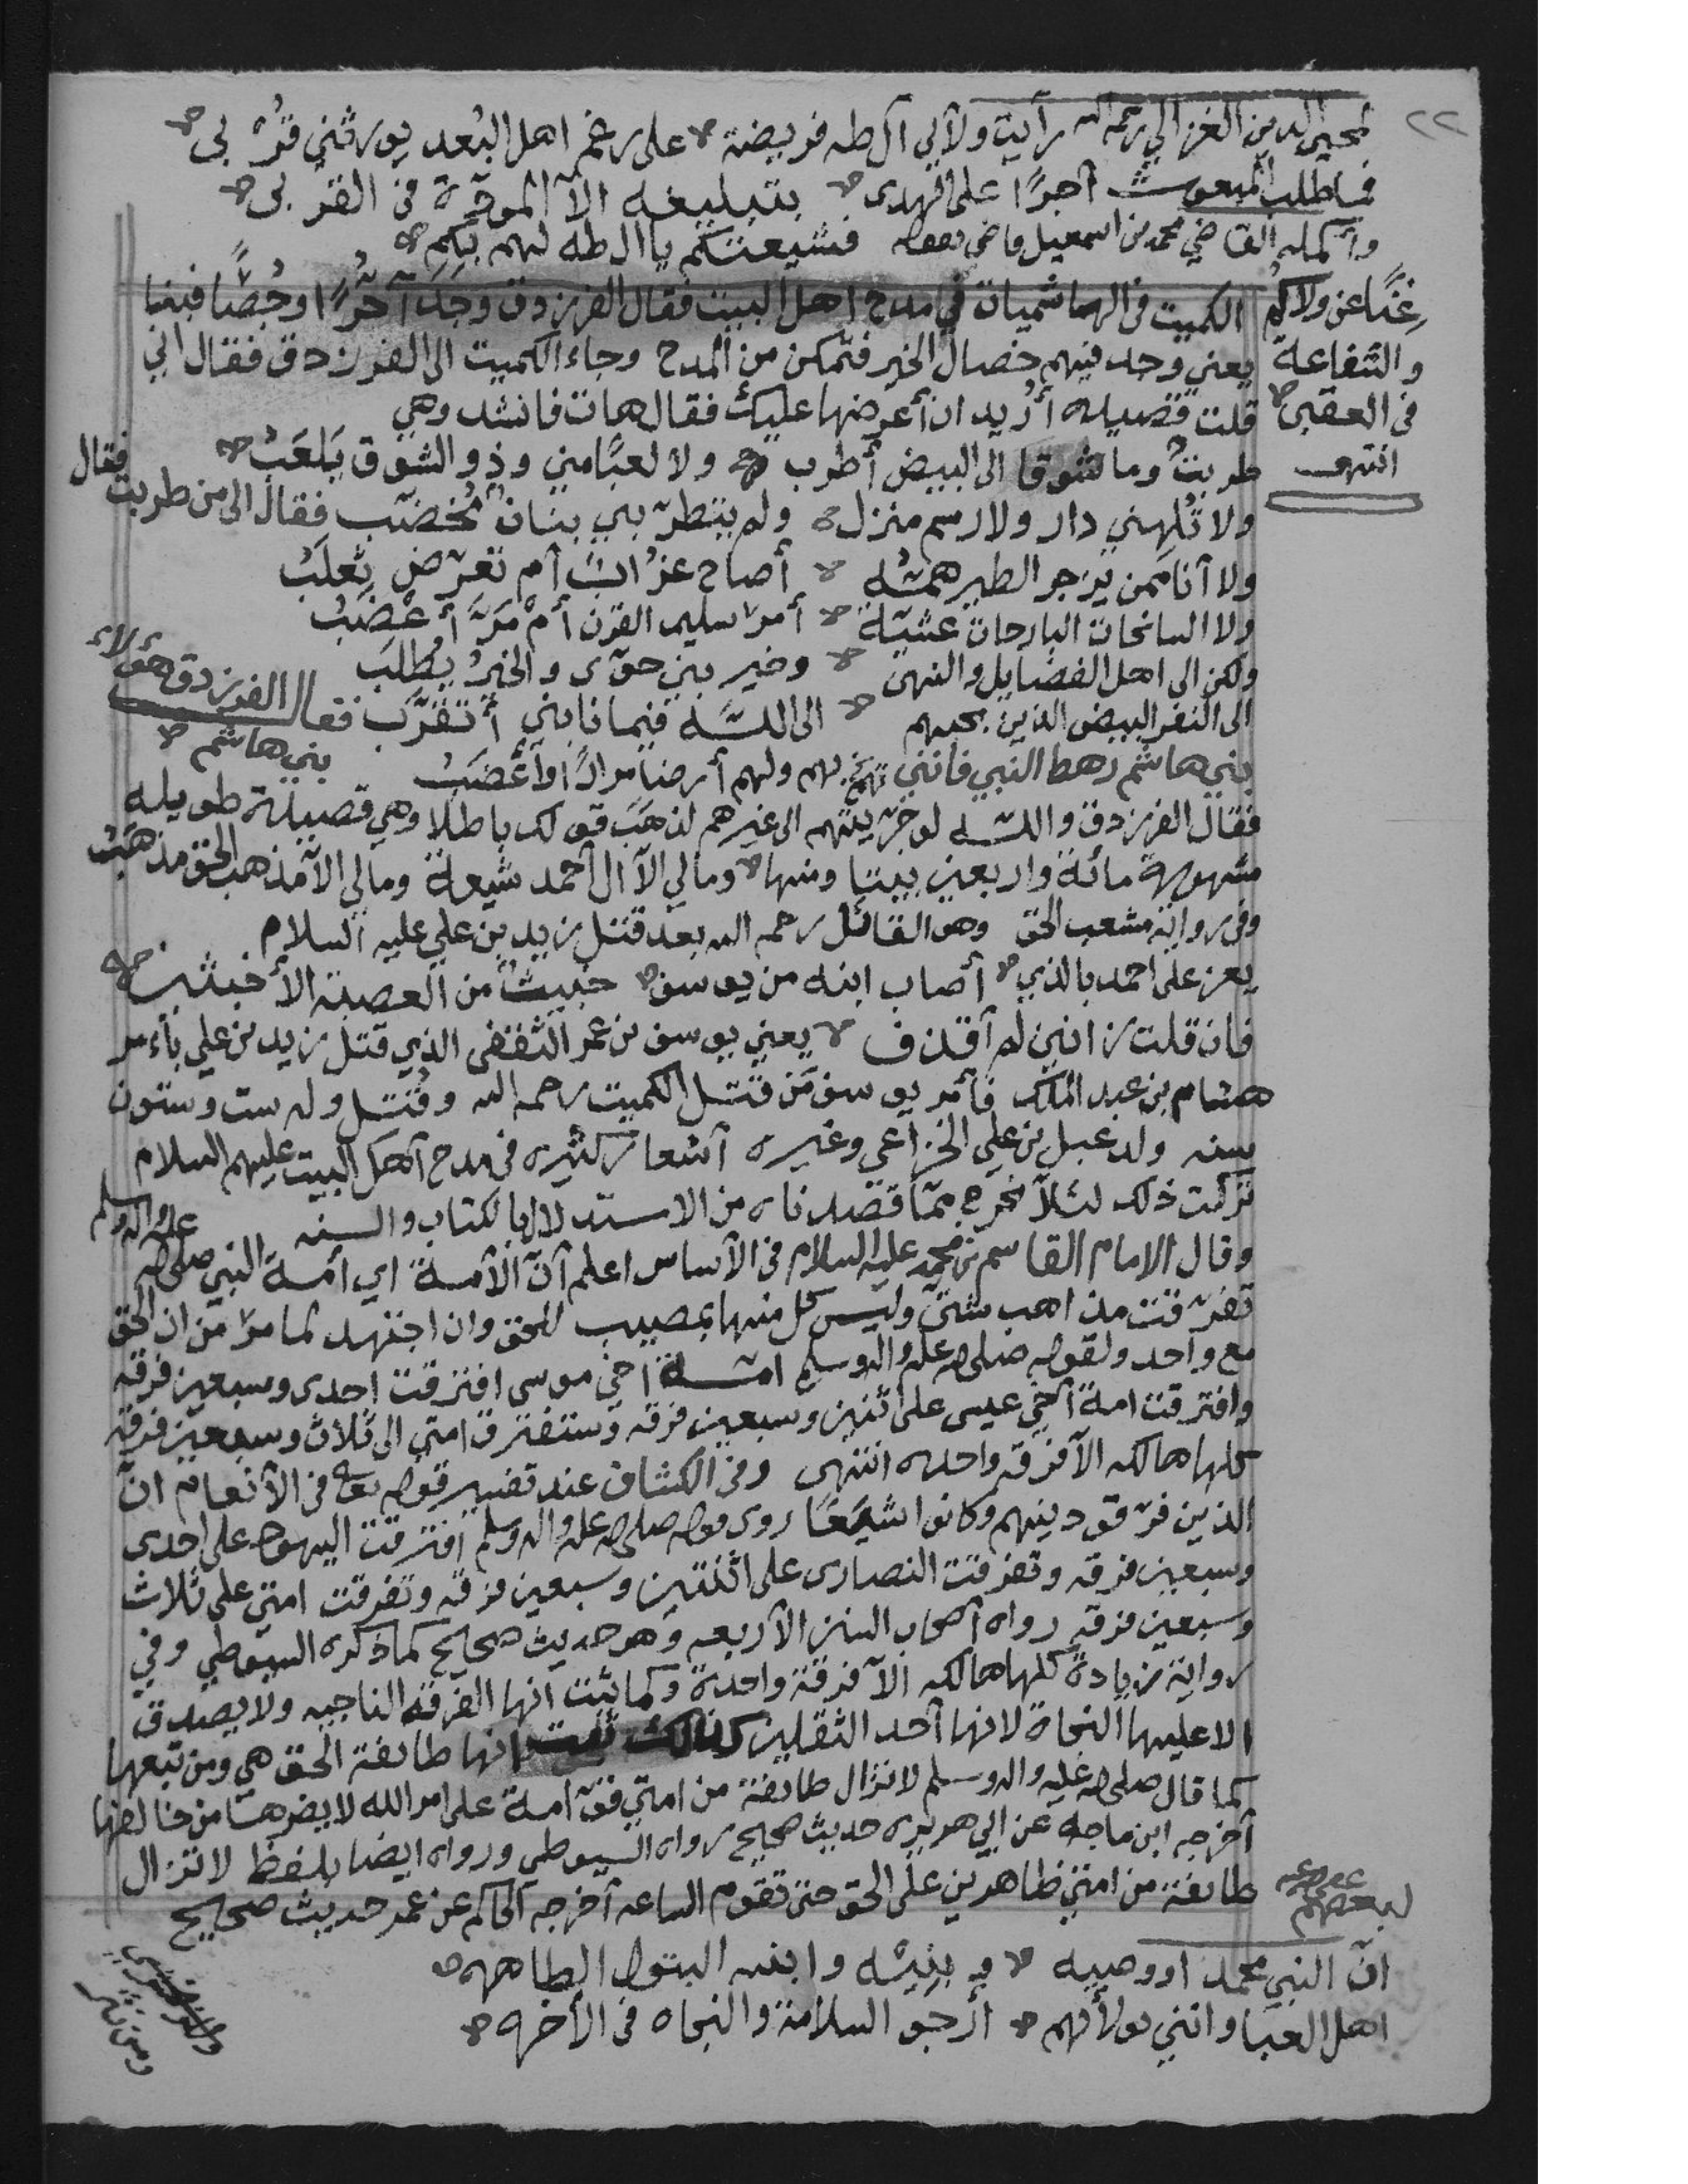 ٢٢
لمحيي الدين الغزالي رحمه الله رأيت ولائي آل طه فريضة على رغم اهل البعد يورثني قربى
فما طلب المبعوث أجرًا على الهدى بتبليغه الا المودة في القربى
وأكمله القاضي محمد بن اسمعيل فشيعتكم يا ال طه لهم بكم
غنًا عن ولاكم
والشفاعة
في العقبى
انتهى
الكميت في الهاشميات في مدح اهل البيت فقال الفرزدق وجد آجُرًّا وجُصًّا فبنا
يعني وجد فيهم خصال الخير فتمكن من المدح وجاء الكميت الى الفرزدق فقال اني
قلت قصيده أريد ان أعرضها عليك فقال هات فانشد وهي
طربتُ وما شوقا الى البيض أطرب ولا لعبًا مني وذو الشوق يَلعَبُ فقال
ولا تُلهني دار ولا رسم منزل ولم يتطرّبني بنان مُخضّب فقال الى من طربت
ولا أنا ممن يزجر الطير همّه أصاح غُراب أم تعرّض ثعلبُ
ولا السانحات البارحات عشيّة أمرّ سليم القرن أمْ مَرَّ أعْضَبُ
ولكن الى اهل الفضايل والنهى وخير بني حوّى والخيرُ يُطلب
الى النفر البيض الذين بحبهم الى اللّه فيما نابني أتقرّب فقال الفرزدق هؤلاء
بني هاشم
بني هاشم رهط النبي فانني بهم ولهم أرضا مرارًا وأغضبُ
فقال الفرزدق واللّه لو جزيتهم الى غيرهم لذهب قولك باطلا وهي قصيدة طويله
مشهورة مائة واربعين بيتا ومنها ومالي الا آل أحمد شيعة ومالي الا مذهب الحق مذهبُ
وفي رواية مشعب الحق وهو القائل رحمه الله بعد قتل زيد بن علي عليه السلام
يعز على احمد بالذي أصاب ابنه من يوسف خبيثٌ من العصبة الأخبثين
فان قلت زانين لم أقذف يعني يوسف بن عمر الثقفى الذي قتل زيد بن علي بأمر
هشام بن عبد الملك فأمر يوسف من قتل الكميت رحمه الله وقُتل وله ست وستون
سنه ولدعبل بن علي الخزاعي وغيره أشعار كثيره في مدح أهل البيت عليهم السلام
تركت ذلك لئلا نخرج مما قصدناه من الاستدلال بالكتاب والسنه
وقال الامام القاسم بن محمد عليه السلام في الأساس اعلم أنّ الأمة اي أمة النبي صلى الله عليه واله وسلم
تفرّقت مذاهب شتّى وليس كل منها بمصيب للحق وان اجتهد لما مرّ من ان الحق
مع واحد ولقوله صلى الله عليه واله وسلم امّة أخي موسى افترقت إحدى وسبعين فرقه
وافترقت امة أخي عيسى على اثنين وسبعين فرقه وستفترق امتي الى ثلاث وسبعين فرقه
كلها هالكه الا فرقه واحده انتهى وفي الكشاف عند تفسير قوله تعالى في الأنعام انّ
الذين فرّقو دينهم وكانوا شيَعًا روى قوله صلى الله عليه واله وسلم افترقت اليهود على احدى
وسبعين فرقه وتفرقت النصارى على اثنتين وسبعين فرقه وتفرقت امتي على ثلاث
وسبعين فرقه رواه أصحاب السنن الأربعه وهو حديث صحيح كما ذكره السيوطي وفي
رواية زيادة كلها هالكه الا فرقة واحدة وكما ثبت انها الفرقه الناجيه ولا يصدق
الا عليها النجاة لانها أحد الثقلين كذلك ثبت انها طائفة الحق هي ومن تبعها
كما قال صلى الله عليه واله وسلم لا تزال طائفة من امتي قوّامة على امر الله لا يضرها من خالفها
أخرجه ابن ماجه عن ابي هريره حديث صحيح رواه السيوطي ورواه ايضا بلفظ لا تزال
طائفة من امتي ظاهرين على الحق حتى تقوم الساعه أخرجه الحاكم عن عمر حديث صحيح
لبعضهم
انّ النبي محمد اووصيه وبنيّه وابنته البتول الطاهره
اهل العبا وانني بولائهم أرجو السلامة والنجاه في الأخره